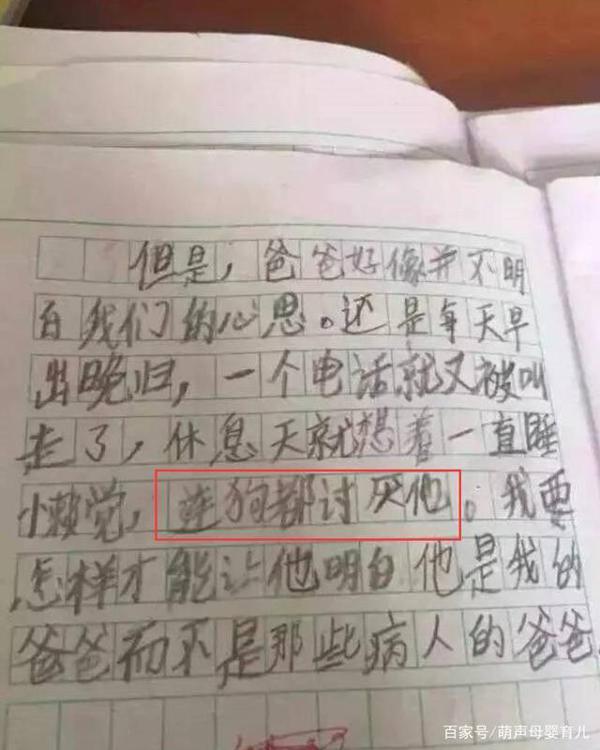 但是，爸爸好像并不明
白我们的心思。还是每天早
出晚归，一个电话就又被叫
走了，休息天就想着一直睡
懒觉，连狗都讨厌他。我要
怎样才能让他明白他是我的
爸爸而不是那些病人的爸爸。
百家号/萌声母婴育儿